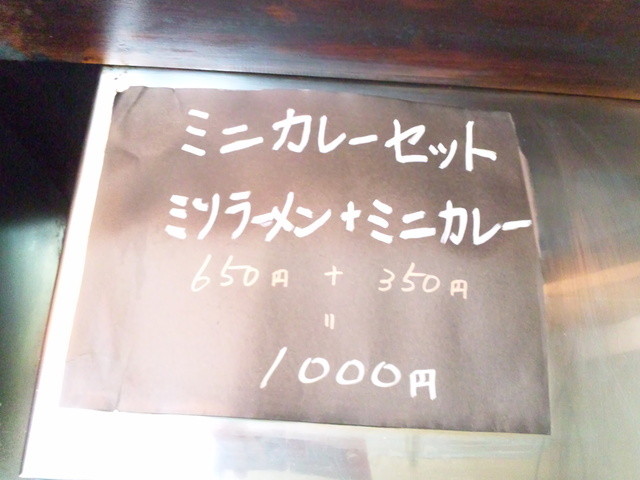 ミニカレーセット
ミソラーメン+ミニカレー
650円 + 350円
=
1000円